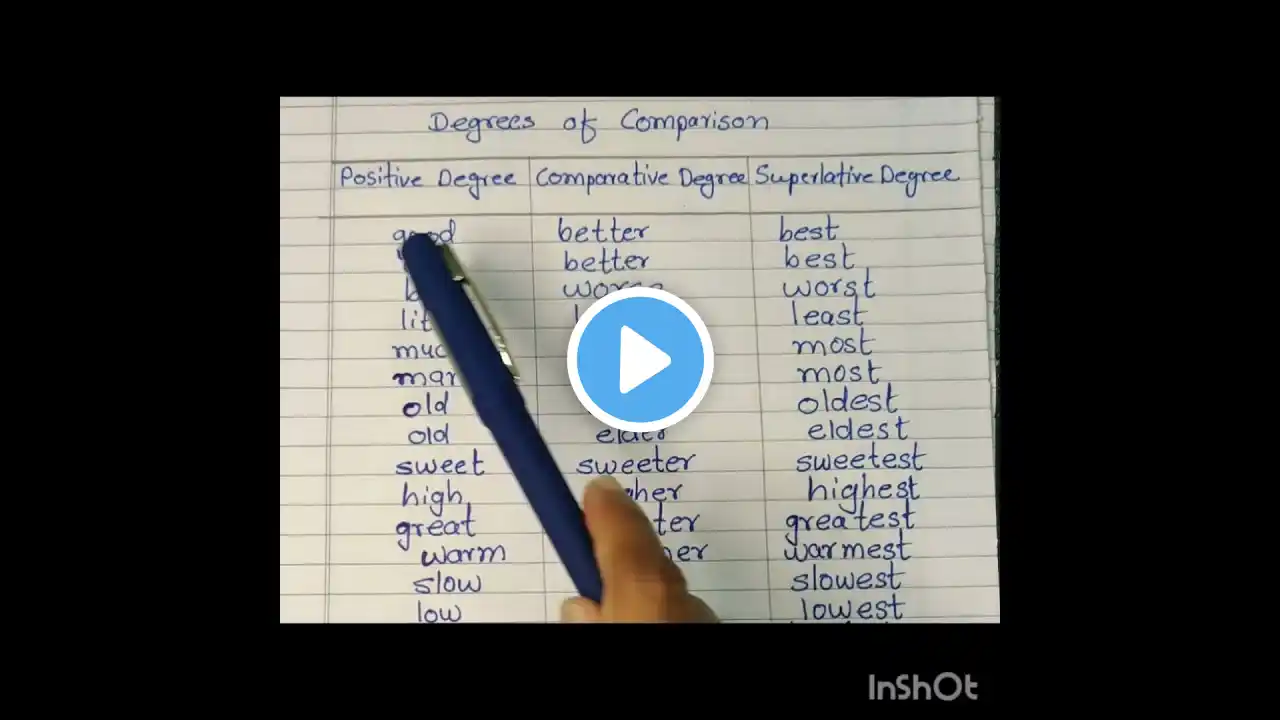 Degrees of Comparison
Positive Degree Comparative Degree Superlative Degree
good better best
better best
worst
least
most
most
old oldest
old elder eldest
sweet sweeter sweetest
high highest
great greatest
warm warmest
slow slowest
low lowest
InShOt